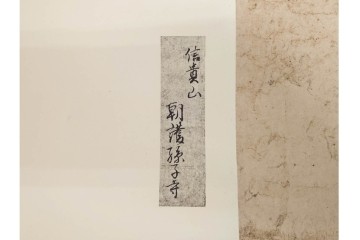 信貴山
朝護孫子寺